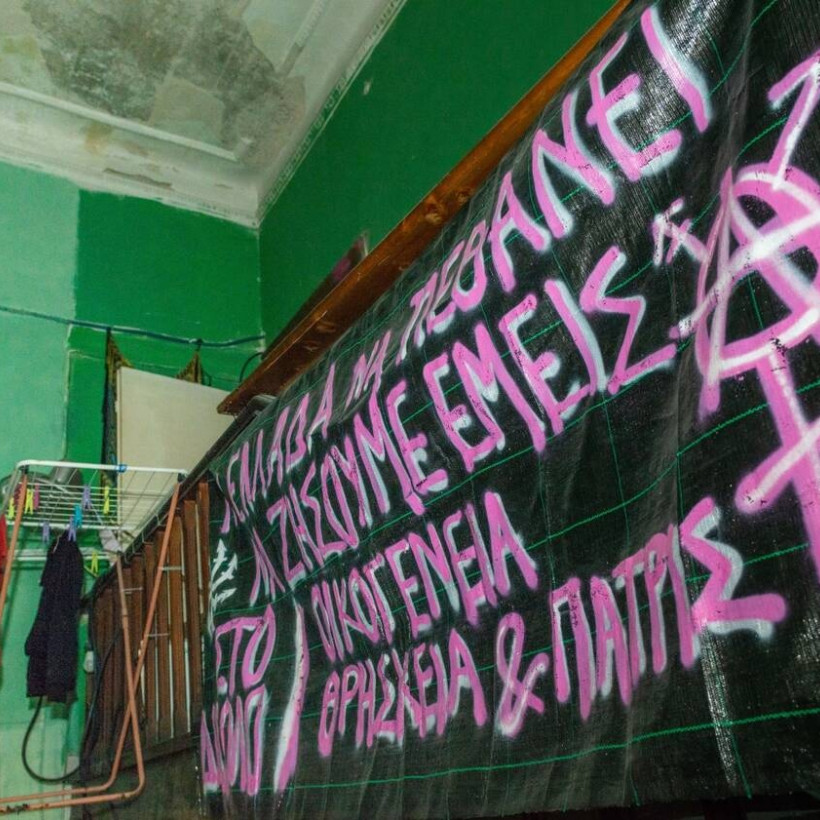 ΕΛΛΑΔΑ ΝΑ ΠΕΘΑΝΕΙ
ΝΑ ΖΗΣΟΥΜΕ ΕΜΕΙΣ
ΣΤΟ
ΔΙΟΛΟ
ΟΙΚΟΓΕΝΕΙΑ
ΘΡΗΣΚΕΙΑ & ΠΑΤΡΙΣ